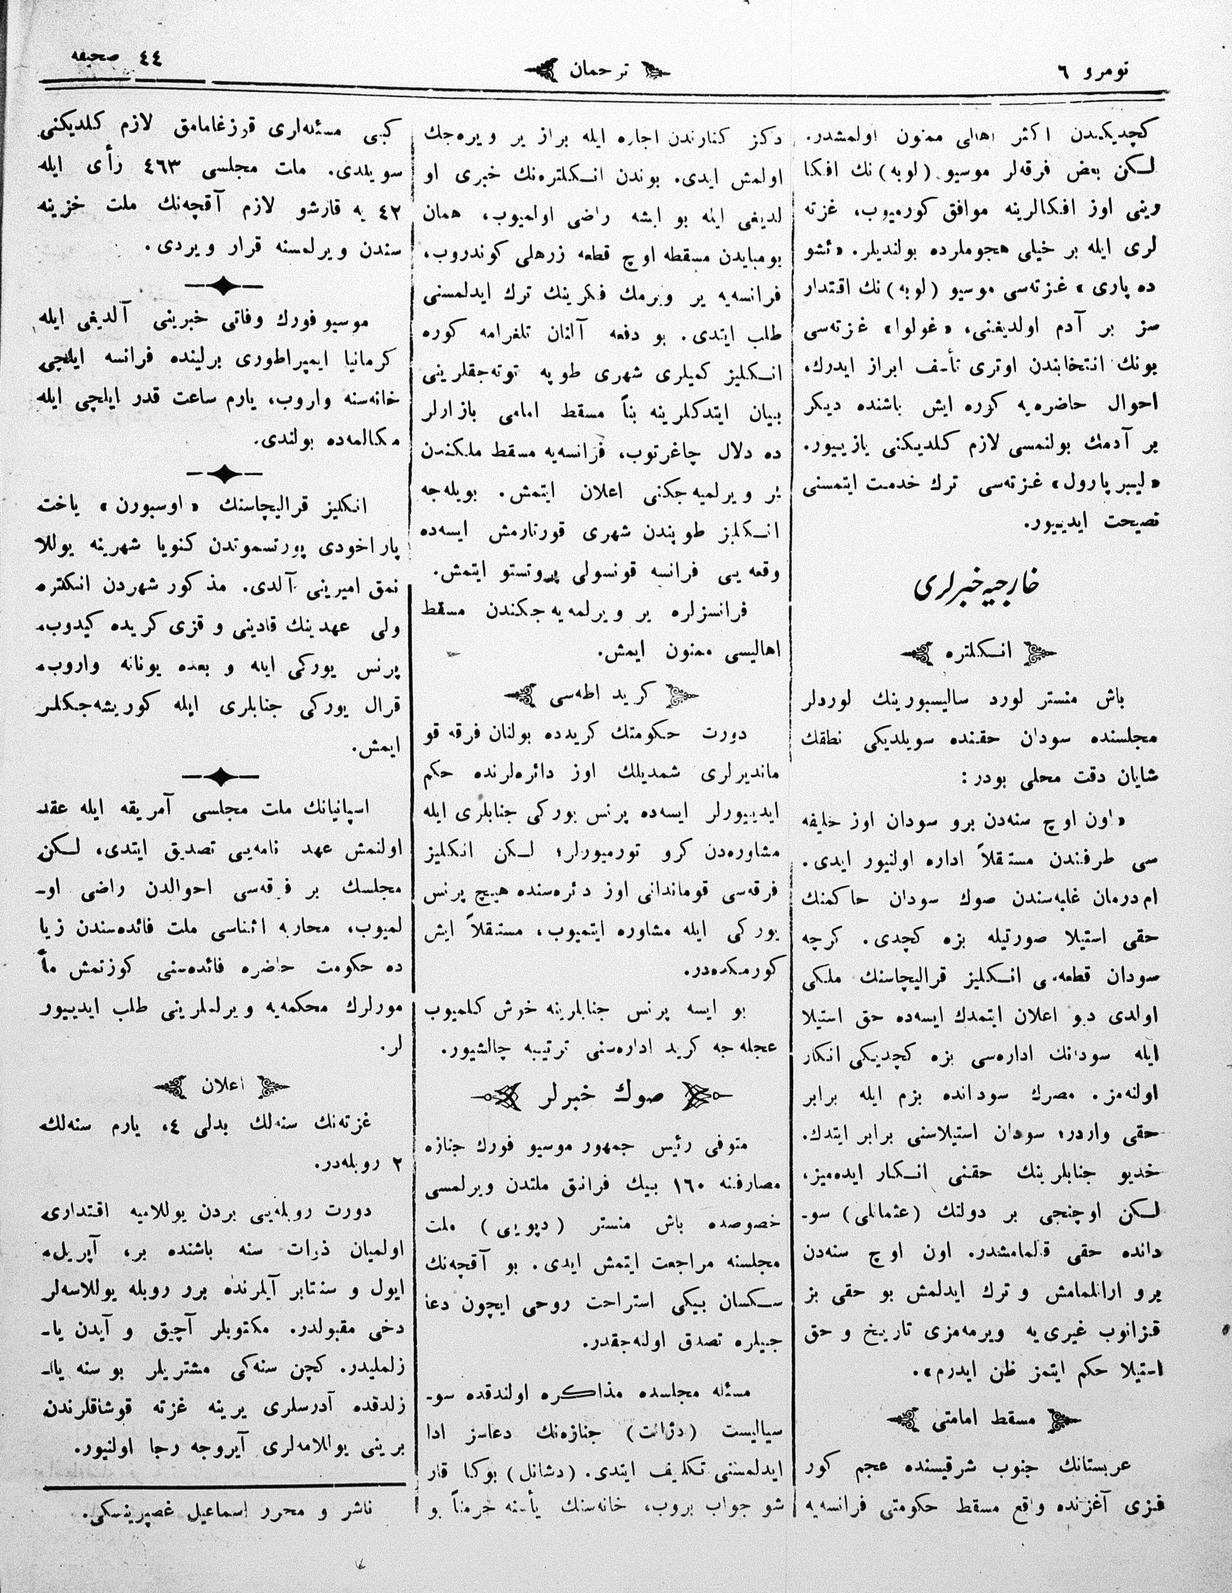 نومرو ٦
ترجمان
٤٤ صحیفه
كچدیكندن اكثر اهالی ممنون اولمشدر.
لـكن بعض فرقه‌لر موسیو (لوبه) نك افكا
رینی اوز افكالرینه موافق كورمیوب، غزته
لری ایله بر خیلی هجوملرده بولندیلر. «ئشو
ده پاری» غزته‌سی موسیو (لوبه) نك اقتدار
سز بر آدم اولدیغنی، «غولوا» غزته‌سی
بونك انتخابندن اوتری تأسف ابراز ایدرك،
احوال حاضره‌یه كوره ایش باشنده دیكر
بر آدمك بولنمسی لازم كلدیكنی یازییور.
«لیبر پارول» غزته‌سی ترك خدمت ایتمسنی
نصیحت ایدییور.
خارجیه خبرلری
انـكلتره
باش منستر لورد سالیسبورینك لوردلر
مجلسنده سودان حقنده سویلدیكی نطقك
شایان دقت محلی بودر:
«اون اوچ سنه‌دن برو سودان اوز خلیفه
سی طرفندن مستقلاً اداره اولنیور ایدی.
ام‌درمان غلبه‌سندن صوك سودان حاكمنك
حقی استیلا صورتیله بزه كچدی. كرچه
سودان قطعه‌سی انـكلیز قرالیچاسنك ملكی
اولدی دیو اعلان ایتمدك ایسه‌ده حق استیلا
ایله سودانك اداره‌سی بزه كچدیكی انكار
اولنه‌مز. مصرك سودانده بزم ایله برابر
حقی واردر؛ سودان استیلاسنی برابر ایتدك.
خدیو جنابلرینك حقنی انـكار ایده‌میز،
لـكن اوچنجی بر دولتك (عثمانلی) سو-
دانده حقی قالمامشدر. اون اوچ سنه‌دن
برو ارانلمامش و ترك ایدلمش بو حقی بز
قزانوب غیری‌یه ویرمه‌مزی تاریخ و حق
استیلا حكم ایتمز ظن ایدرم».
مسقط امامتی
عربستانك جنوب شرقیسنده عجم كور
فزی آغزنده واقع مسقط حكومتی فرانسه‌یه
دكز كنارندن اجاره ایله براز یر ویره‌جك
اولمش ایدی. بوندن انـكلتره‌نك خبری او
لدیغی ایله بو ایشه راضی اولمیوب، همان
بومبایدن مسقطه اوچ قطعه زرهلی كوندروب،
فرانسه‌یه یر ویرمك فكرینك ترك ایدلمسنی
طلب ایتدی. بو دفعه آلنان تلغرامه كوره
انـكلیز كمیلری شهری طوپه توته‌جقلرینی
بیان ایتدكلرینه بناً مسقط امامی بازارلر
ده دلال چاغرتوب، فرانسه‌یه مسقط ملكندن
یر ویرلمیه‌جكنی اعلان ایتمش. بویله‌جه
انـكلیز طوپندن شهری قورتارمش ایسه‌ده
وقعه‌یی فرانسه قونسولی پروتستو ایتمش.
فرانسزلره یر ویرلمه‌یه‌جكندن مسقط
اهالیسی ممنون ایمش.
كرید اطه‌سی
دورت حكومتك كریدده بولنان فرقه قو
ماندیرلری شمدیلك اوز دائره‌لرنده حكم
ایدییورلر ایسه‌ده پرنس یوركی جنابلری ایله
مشاوره‌دن كرو تورمیورلر؛ لـكن انكلیز
فرقه‌سی قوماندانی اوز دئره‌سنده هیچ پرنس
یوركی ایله مشاوره ایتمیوب، مستقلاً ایش
كورمكده‌در.
بو ایسه پرنس جنابلرینه خوش كلمیوب
عجله‌جه كرید اداره‌سنی ترتیبه چالشیور.
صوك خبرلر
متوفی رئیس جمهور موسیو فورك جنازه
مصارفنه ١٦٠ بیك فرانق ملتدن ویرلمسی
خصوصده باش منستر (دپویی) ملت
مجلسنه مراجعت ایتمش ایدی. بو آقچه‌نك
سـكسان بیكی استراحت روحی ایچون دعا
جیلره تصدق اولنه‌جقدر.
مسئله مجلسده مذاكره اولندقده سو-
سیالیست (دژانت) جنازه‌نك دعاسز ادا
ایدلمسنی تـكلیف ایتدی. (دشانل) بوكا قار
شو جواب بروب، خانه‌سنك یأسنه حرمتاً بو
كبی مسئله‌لری قوزغامامق لازم كلدیكنی
سویلدی. ملت مجلسی ٤٦٣ رأی ایله
٤٢ یه قارشو لازم آقچه‌نك ملت خزینه
سندن ویرلمسنه قرار ویردی.
موسیو فورك وفاتی خبرینی آلدیغی ایله
كرمانیا ایمپراطوری برلینده فرانسه ایلچی
خانه‌سنه واروب، یارم ساعت قدر ایلچی ایله
مكالمه‌ده بولندی.
انكلیز قرالیچاسنك «اوسبورن» یاخت
پاراخودی پورتسموتدن كنویا شهرینه یوللا
نمق امیرینی آلدی. مذكور شهردن انكلتره
ولی عهدینك قادینی و قزی كریده كیدوب،
پرنس یوركی ایله و بعده یونانه واروب،
قرال یوركی جنابلری ایله كوریشه‌جكلر
ایمش.
اسپانیانك ملت مجلسی آمریقه ایله عقد
اولنمش عهد نامه‌یی تصدیق ایتدی، لـكن
مجلسك بر فرقه‌سی احوالدن راضی او-
لمیوب، محاربه اثناسی ملت فائده‌سندن زیا
ده حكومت حاضره فائده‌سنی كوزتمش مأ
مورلرك محكمه‌یه ویرلملرینی طلب ایدییور
لر.
اعلان
غزته‌نك سنه‌لك بدلی ٤، یارم سنه‌لك
٢ روبله‌در.
دورت روبله‌یی بردن یوللامیه اقتداری
اولمیان ذوات سنه باشنده بر، آپریل،
ایول و سنتابر آیلرنده برر روبله یوللاسه‌لر
دخی مقبولدر. مكتوبلر آچیق و آیدن یا-
زلملیدر. كچن سنه‌كی مشتریلر بو سنه یا-
زلدقده آدرسلری یرینه غزته قوشاقلرندن
برینی یوللامه‌لری آیروجه رجا اولنیور.
ناشر و محرر اسماعیل غصپرینسكی.